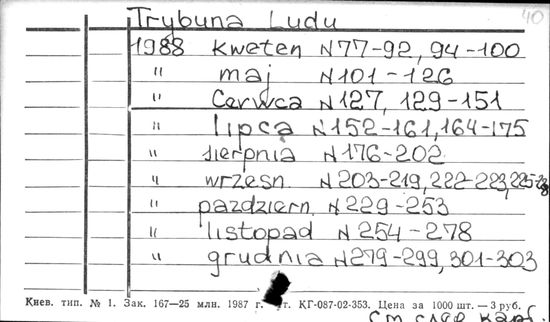 40
Trybuna Ludu
1988 kweten N77-92, 94-100
" maj N101-126
" Cerwca N127, 129-151
" lipca N152-161, 164-175
" sierpnia N176-202
" wrzesn. N203-219, 222-223, 225-228
" pazdziern. N229-253
" listopad N254-278
" grudnia N279-299, 301-303
Киев. тип. № 1. Зак. 167—25 млн. 1987 г. КГ-087-02-353. Цена за 1000 шт. — 3 руб.
См след карт.